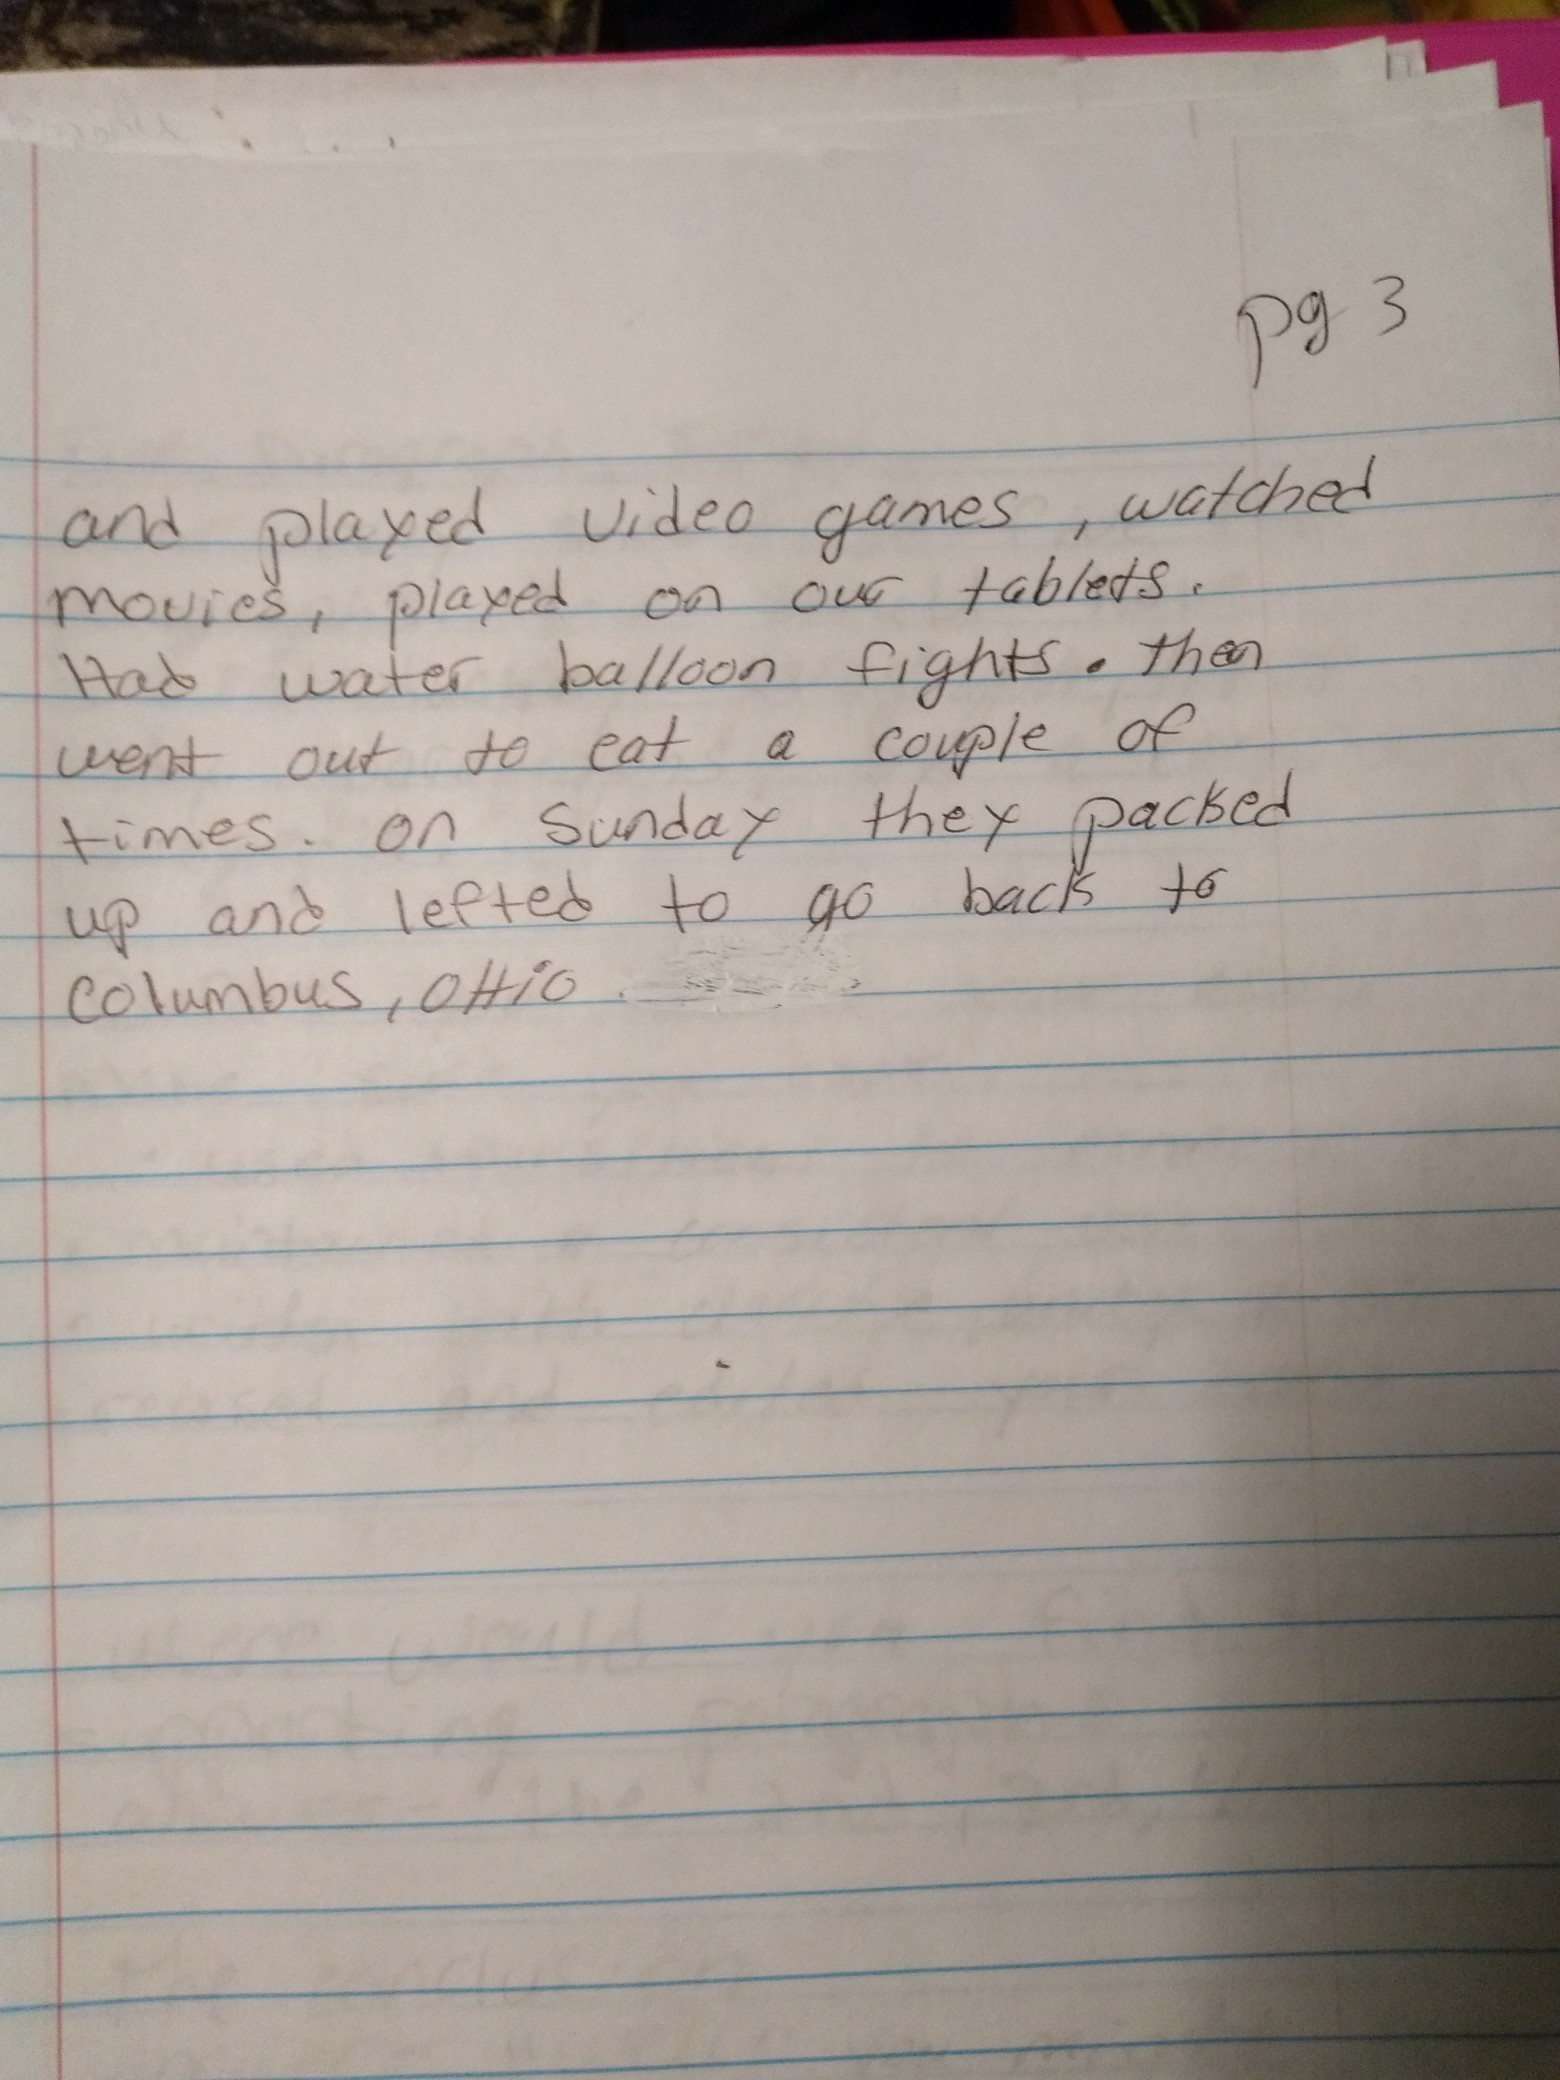 pg 3
and played video games, watched
movies, played on our tablets.
Had water balloon fights. then
went out to eat a couple of
times. on Sunday they packed
up and lefted to go back to
Columbus, OHio.